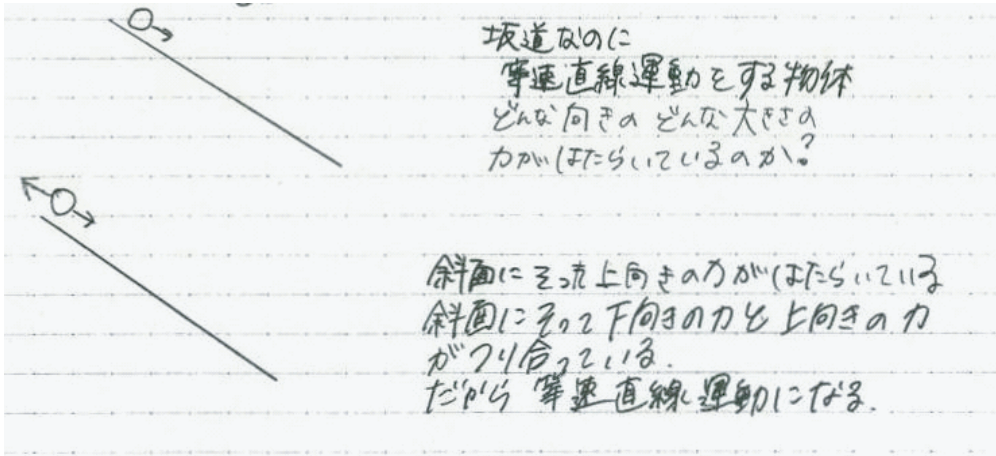 坂道なのに
等速直線運動をする物体
どんな向きの どんな大きさの
力がはたらいているのか?
斜面にそった上向きの力がはたらいている
斜面にそって下向きの力と上向きの力
がつり合っている.
だから 等速直線運動になる.